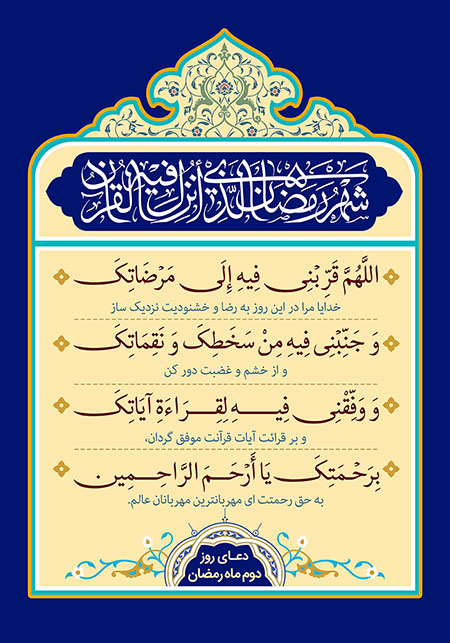 شهر رمضان الذي أنزل فيه القرآن
اللَّهُمَّ قَرِّبْنِي فِيهِ إِلَى مَرْضَاتِكَ
خدایا مرا در این روز به رضا و خشنودیت نزدیک ساز
وَ جَنِّبْنِي فِيهِ مِنْ سَخَطِكَ وَ نَقِمَاتِكَ
و از خشم و غضبت دور کن
وَ وَفِّقْنِي فِيهِ لِقِرَاءَةِ آيَاتِكَ
و بر قرائت آیات قرآنت موفق گردان،
بِرَحْمَتِكَ يَا أَرْحَمَ الرَّاحِمِينَ
به حق رحمتت ای مهربانترین مهربانان عالم.
دعای روز
دوم ماه رمضان